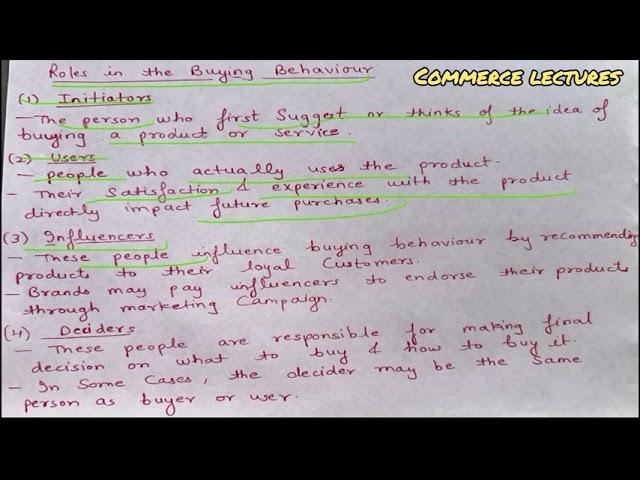 Roles in the Buying Behaviour
COMMERCE LECTURES
(1) Initiators
- The person who first Suggest or thinks of the idea of
buying a product or service.
(2) Users
- people who actually uses the product.
- Their Satisfaction & experience with the product
directly impact future purchases.
(3) Influencers
- These people influence buying behaviour by recommending
products to their loyal Customers.
- Brands may pay influencers to endorse their products
through marketing Campaign.
(4) Deciders
- These people are responsible for making final
decision on what to buy & how to buy it.
- In Some Cases, the decider may be the Same
person as buyer or user.